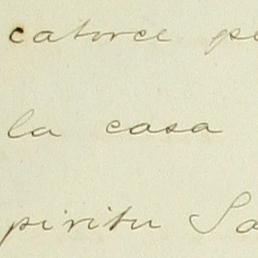 catorce pe
la casa
piritu Sa